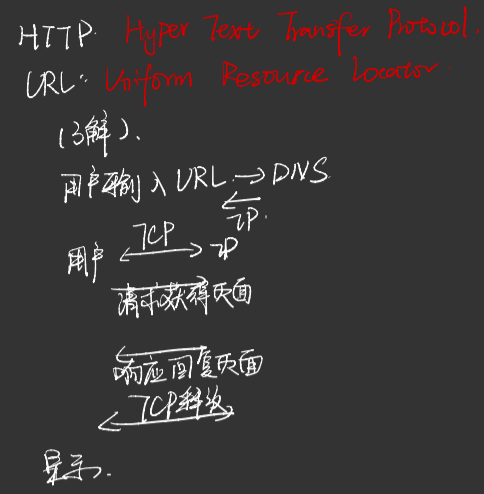 HTTP: Hyper Text Transfer Protocol.
URL: Uniform Resource Locator
(了解).
用户输入URL → DNS
← IP.
TCP
用户 ↔ IP
请求获得页面
响应回复页面
TCP释放
显示.